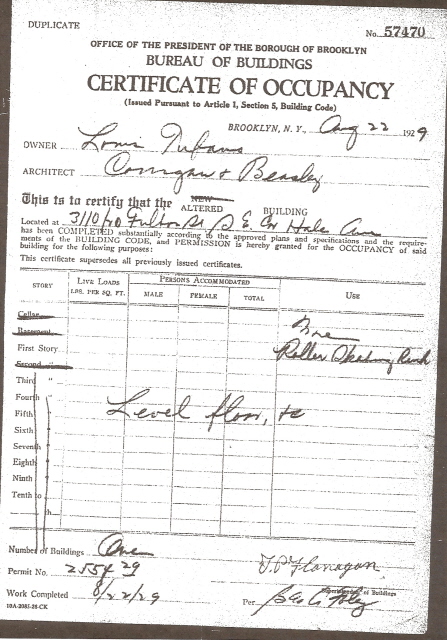 DUPLICATE
No. 57470
OFFICE OF THE PRESIDENT OF THE BOROUGH OF BROOKLYN
BUREAU OF BUILDINGS
CERTIFICATE OF OCCUPANCY
(Issued Pursuant to Article I, Section 5, Building Code)
BROOKLYN, N. Y., Aug 22 1929
OWNER Louis
ARCHITECT Corrigan & Beasley
This is to certify that the NEW ALTERED BUILDING
Located at 3110/40 Fulton St S. E. Cor Hale Ave
has been COMPLETED substantially according to the approved plans and specifications and the require-
ments of the BUILDING CODE, and PERMISSION is hereby granted for the OCCUPANCY of said
building for the following purposes:
This certificate supersedes all previously issued certificates.
STORY LIVE LOADS LBS. PER SQ. FT. PERSONS ACCOMMODATED MALE FEMALE TOTAL USE
Cellar
Basement
First Story Roller Skating Rink
Second "
Third "
Fourth "
Level floor,
Fifth "
Sixth "
Seventh "
Eighth "
Ninth "
Tenth to
th
Number of Buildings One
Permit No. 2554 29
J. P. Flanagan
Superintendent of Buildings
Work Completed 8/22/29
Per
10A-2081-28-CK